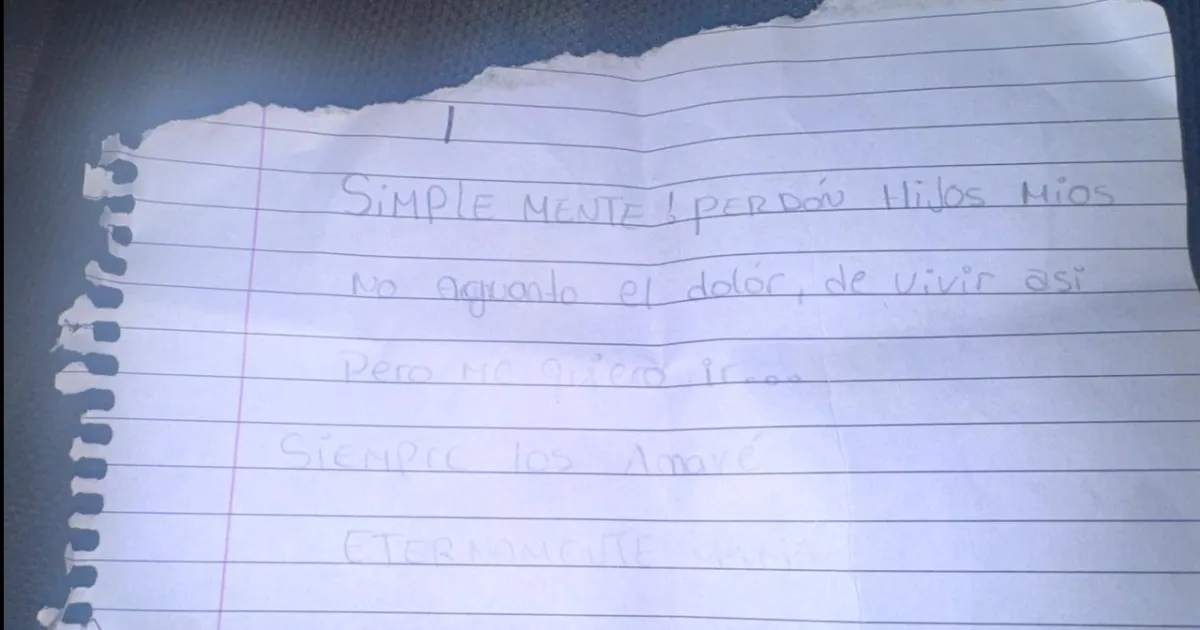 SiMPlE MENTE ! PERDÓN HiJos Mios
No Aguanto el dolór, de vivir asi
Pero me quiero ir....
SiEMPrE los Amaré
ETERNAMENTE